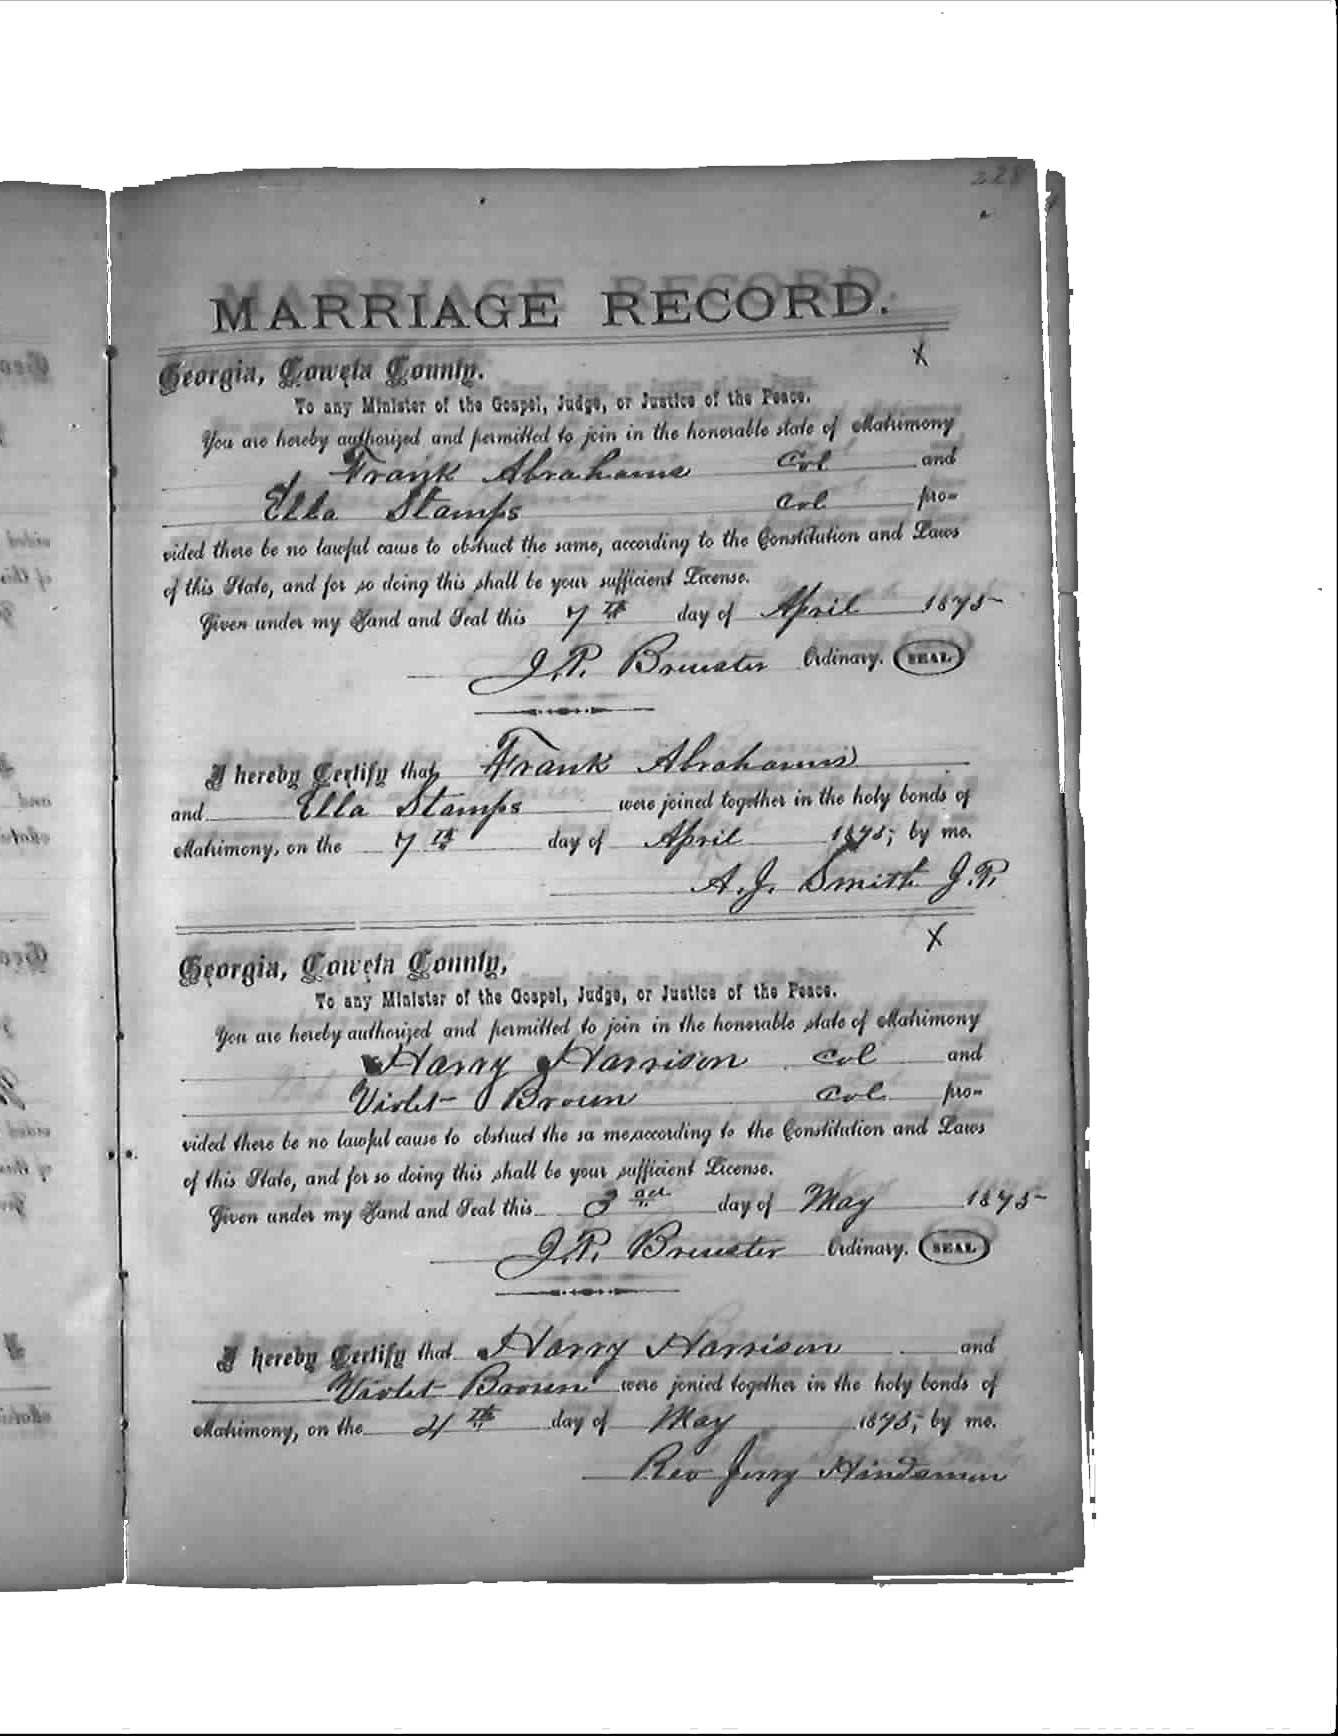 228
MARRIAGE RECORD.
X
Georgia, Coweta County.
To any Minister of the Gospel, Judge, or Justice of the Peace.
You are hereby authorized and permitted to join in the honorable state of Matrimony
Frank Abrahams Col and
Ella Stamps Col pro-
vided there be no lawful cause to obstruct the same, according to the Constitution and Laws
of this State, and for so doing this shall be your sufficient License.
Given under my Hand and Seal this 7th day of April 1875
J.P. Brewster Ordinary. SEAL
I hereby Certify that Frank Abrahams
and Ella Stamps were joined together in the holy bonds of
Matrimony, on the 7th day of April 1875, by me.
A. J. Smith J.P.
X
Georgia, Coweta County,
To any Minister of the Gospel, Judge, or Justice of the Peace.
You are hereby authorized and permitted to join in the honorable state of Matrimony
Harry Harrison Col and
Violet Brown Col pro-
vided there be no lawful cause to obstruct the sa me,according to the Constitution and Laws
of this State, and for so doing this shall be your sufficient License.
Given under my Hand and Seal this 3rd day of May 1875
J.P. Brewster Ordinary. SEAL
I hereby Certify that Harry Harrison and
Violet Brown were jonied together in the holy bonds of
Matrimony, on the 4th day of May 1875, by me.
Rev Jerry Hindsman